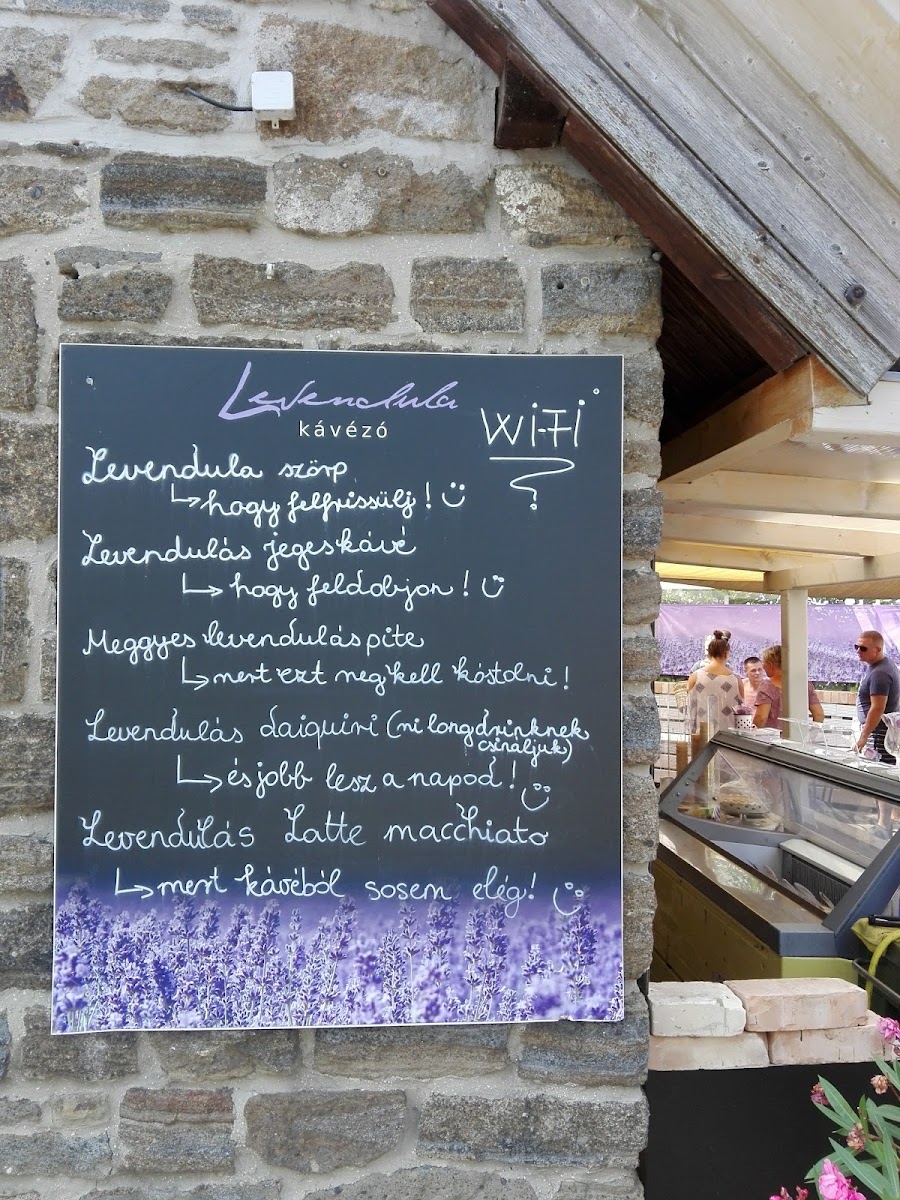 Levendula
kávézó
Wi-Fi
Levendula szörp
hogy felfrissülj!
Levendulás jegeskávé
hogy feldobjon!
Meggyes levendulás pite
mert ezt meg kell kóstolni!
Levendulás daiquiri (mi longdrinknek
csináljuk)
és jobb lesz a napod!
Levendulás Latte macchiato
mert kávéból sosem elég!